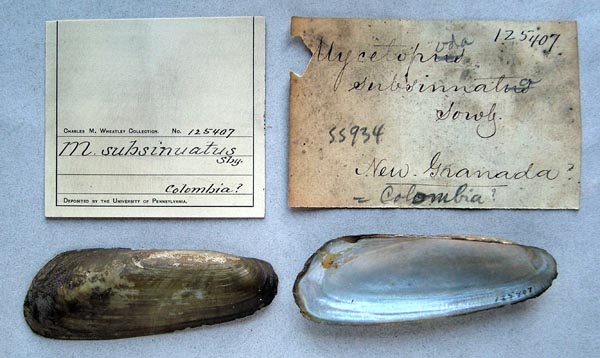 CHARLES M. WHEATLEY COLLECTION. No. 125407
M. subsinuatus
Sby.
Colombia?
DEPOSITED BY THE UNIVERSITY OF PENNSYLVANIA.
125407
Mycetopus
oda
subsinuatus
Sowb.
SS934
New Granada?
= Colombia?
125407